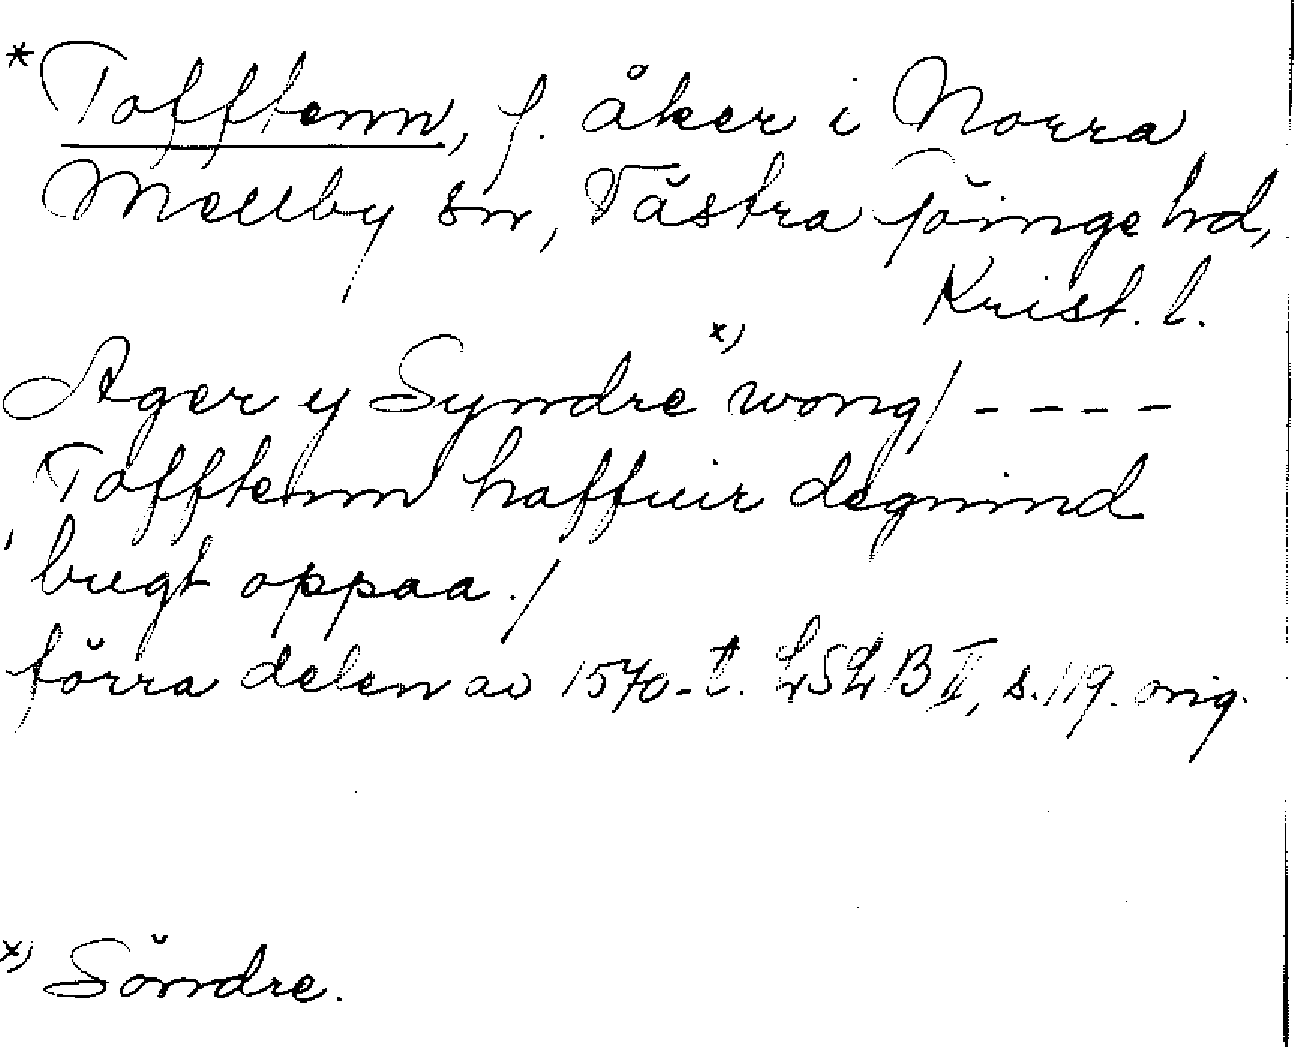 *Tofftenn, f. åker i Norra
Mellby sn, Västra Göinge hd,
Krist. l.
Ager y Syndre x) wong/ - - - -
Tofftenn haffuir degnind
bugt oppaa./
förra delen av 1570-t. LSLB II, s. 119. orig.
x) Söndre.